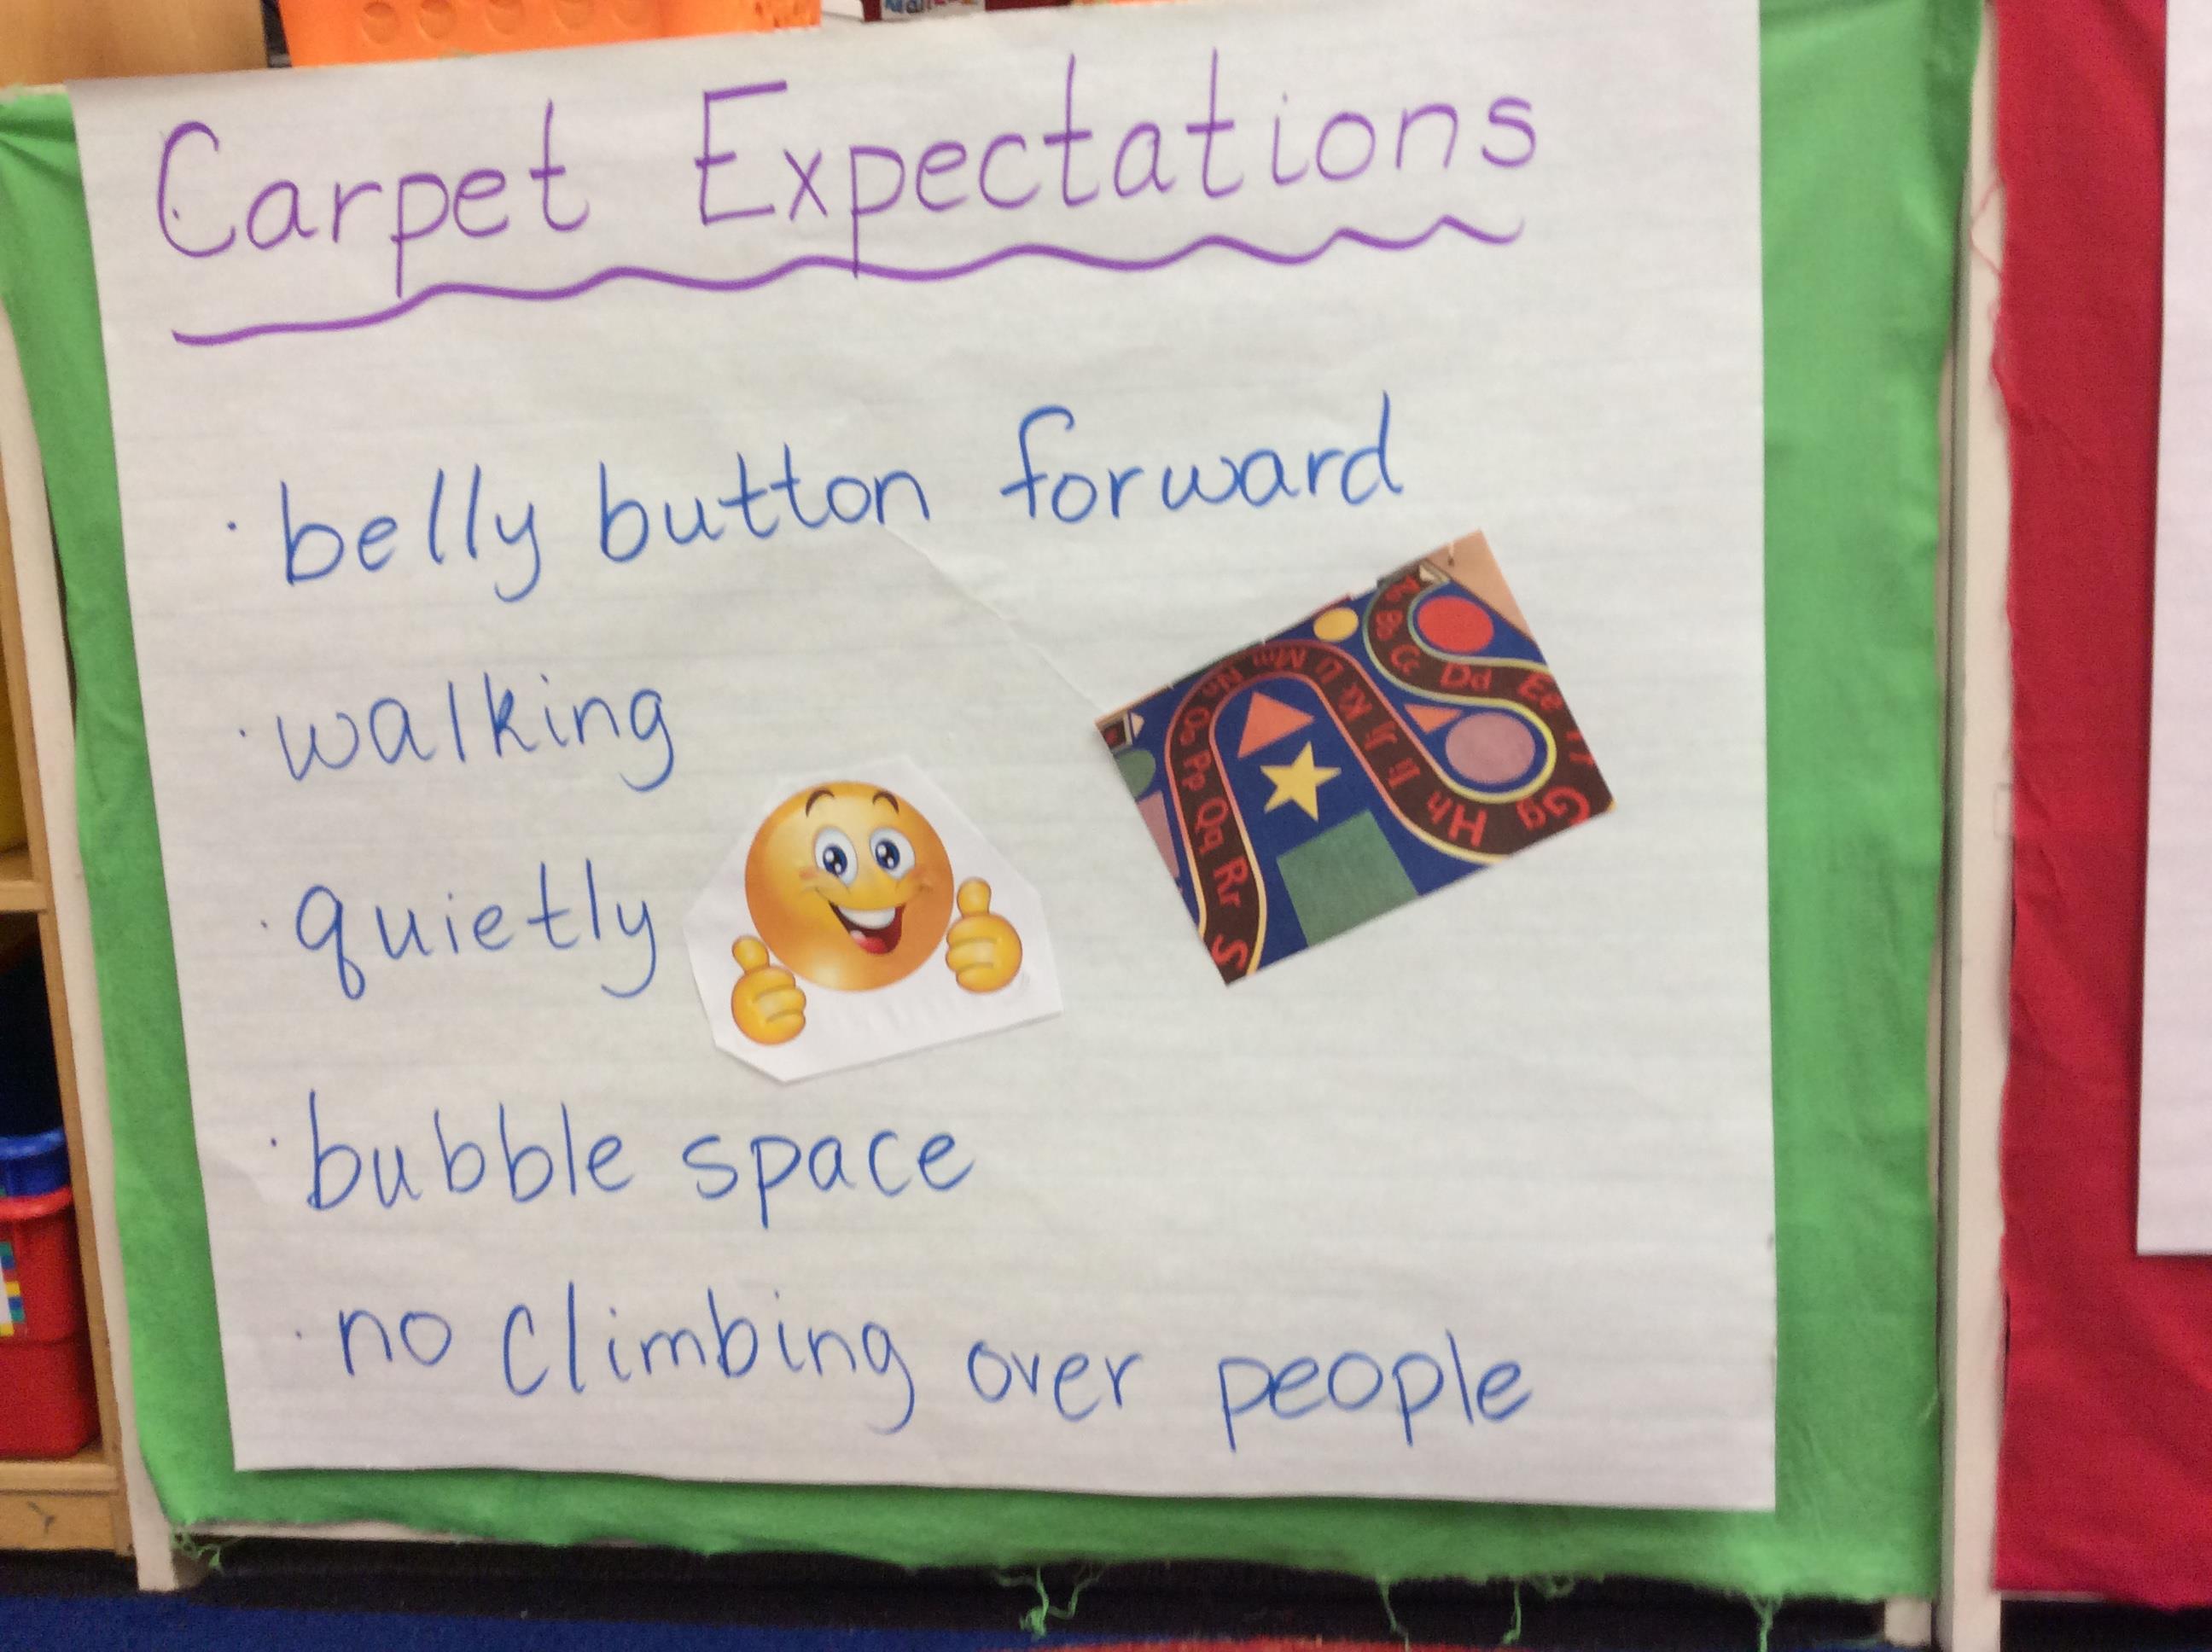 Carpet Expectations
· belly button forward
· walking
· quietly
· bubble space
· no climbing over people
Bb Cc Dd Ee
Gg Hh Ii Jj Kk Ll Mm Nn Oo Pp Qq Rr S